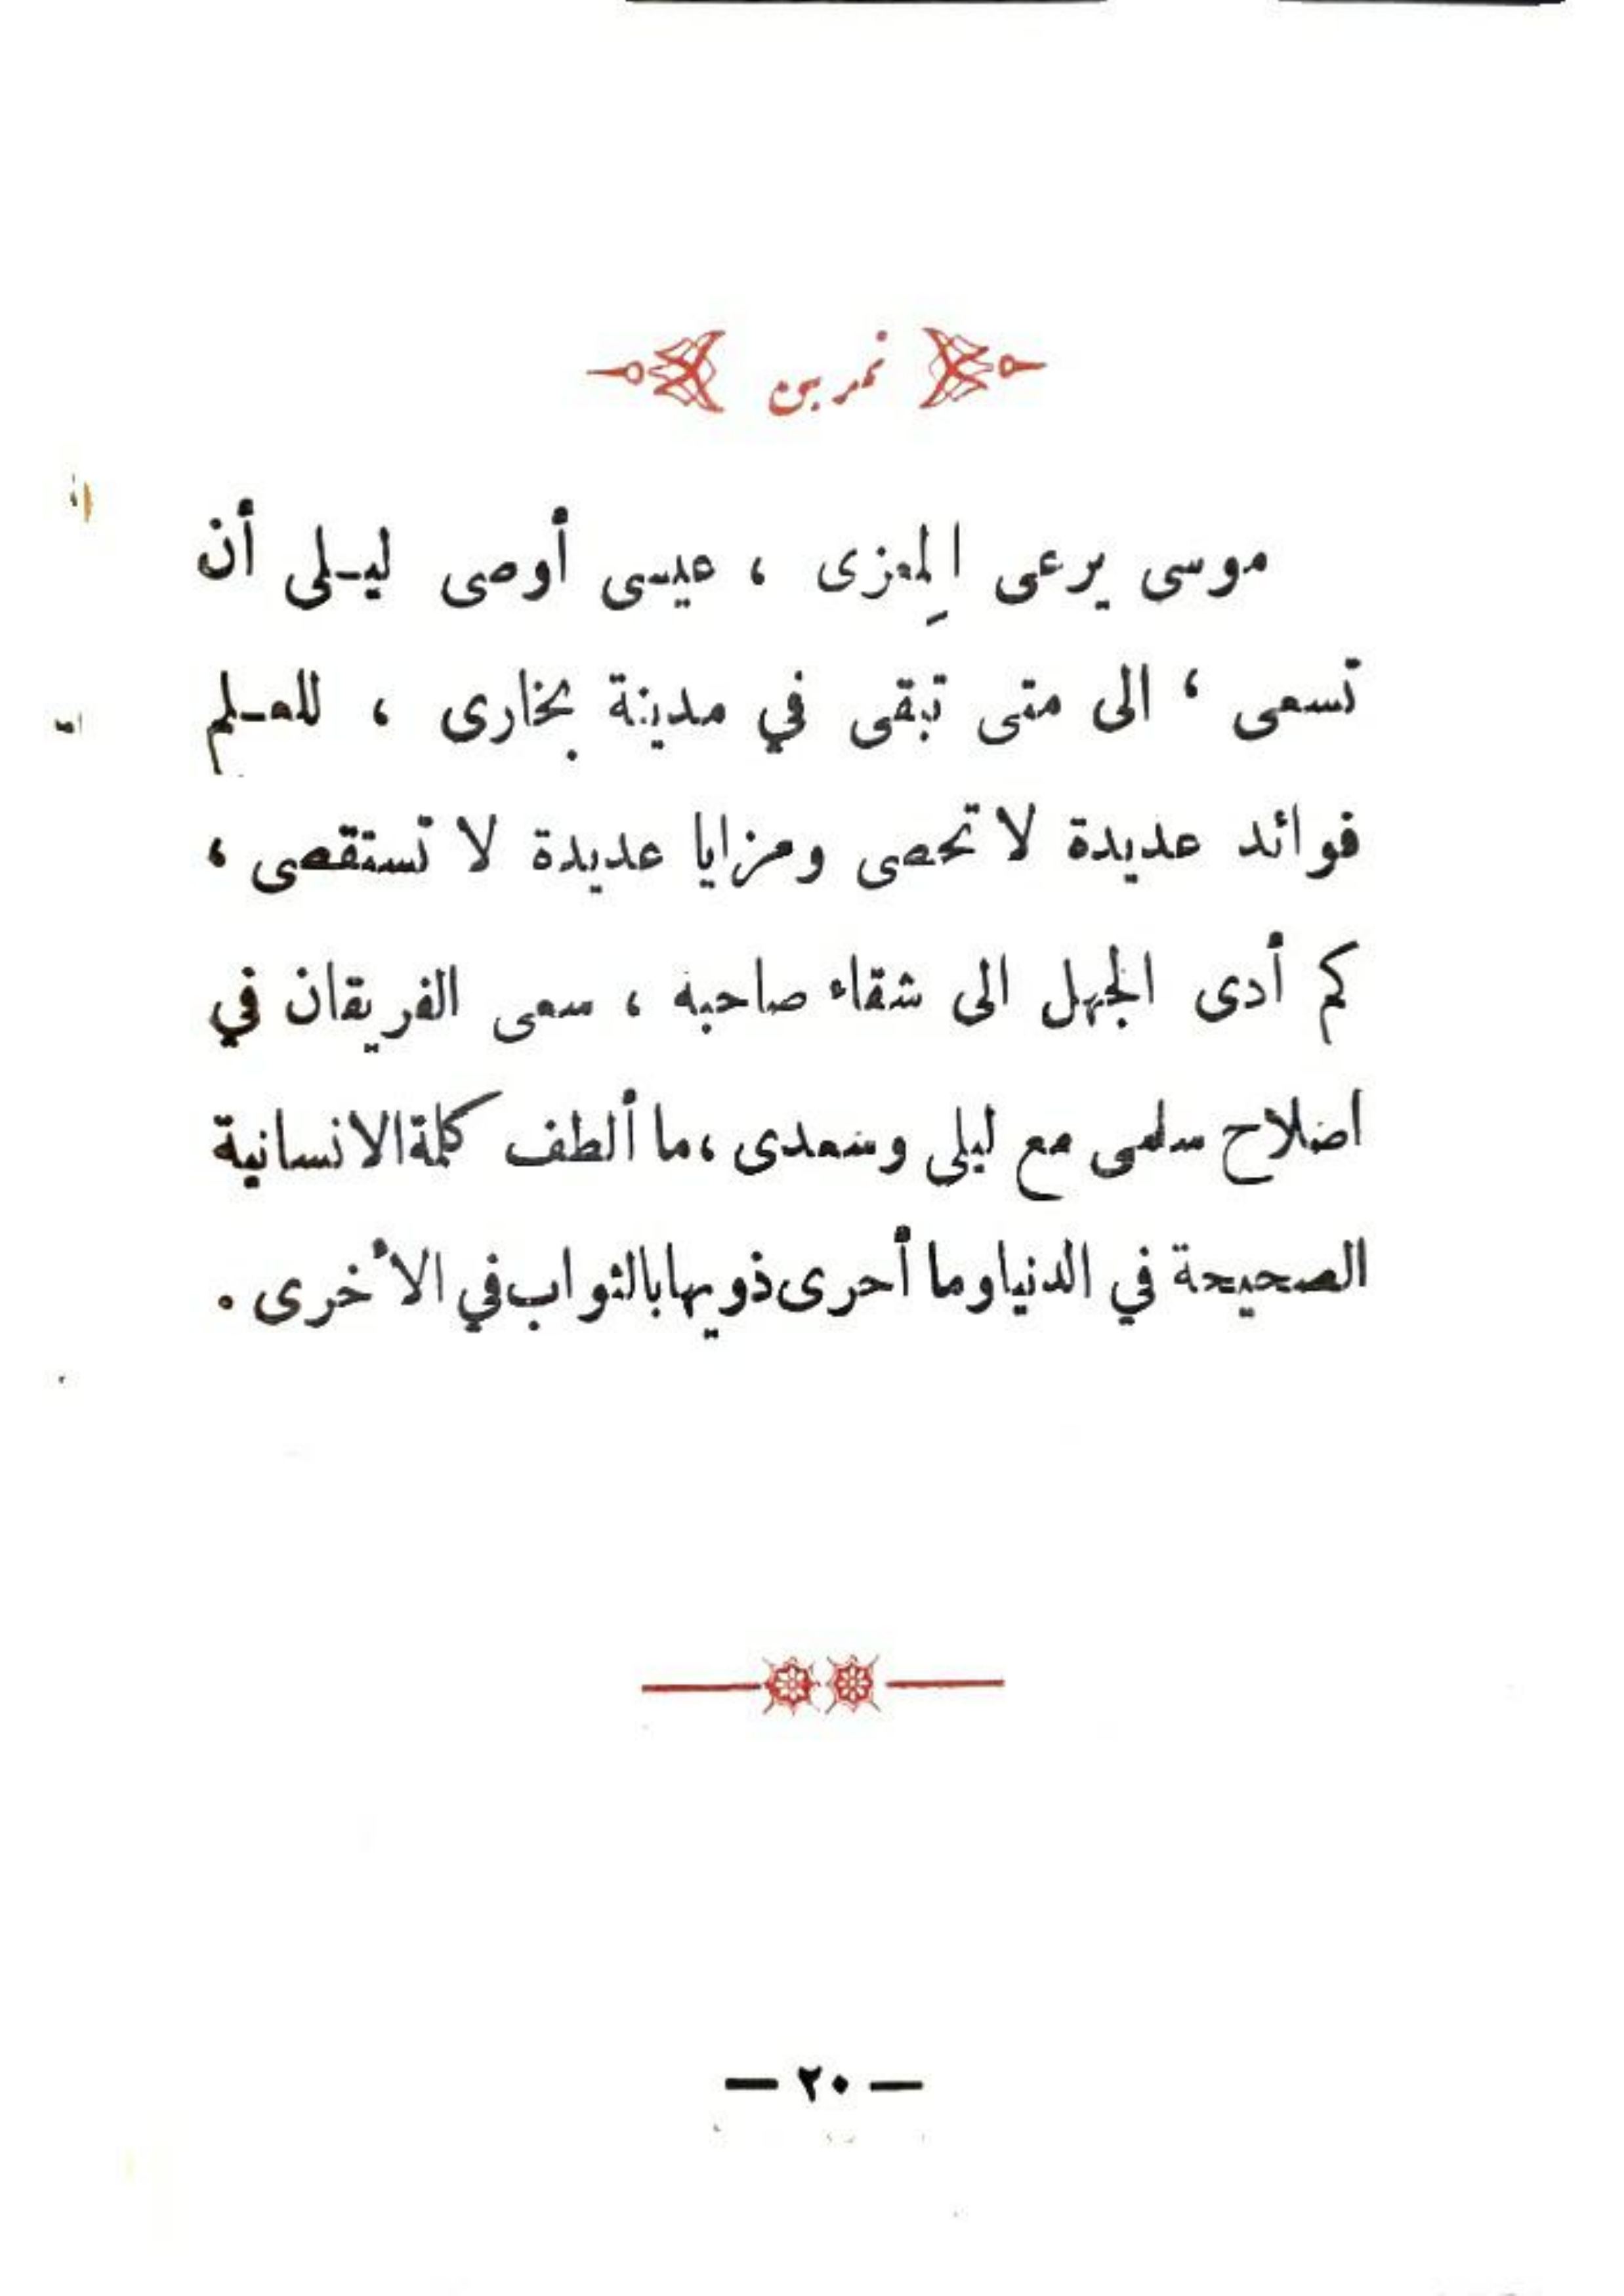 تمرين
موسى يرعى المِعزى ، عيسى أوصى ليـلى أن
تسعى ، الى متى تبقى في مدينة بخارى ، للعـلم
فوائد عديدة لا تحصى ومزايا عديدة لا تستقصى ،
كم أدى الجهل الى شقاء صاحبه ، سعى الفريقان في
اصلاح سلمى مع ليلى وسعدى ، ما ألطف كلمة الانسانية
الصحيحة في الدنيا وما أحرى ذويها بالثواب في الأخرى .
— ٢٠ —